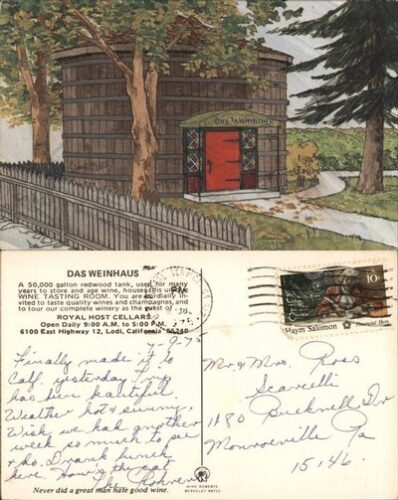 Das Weinhaus
DAS WEINHAUS
A 50,000 gallon redwood tank, used for many
years to store and age wine, houses this unique
WINE TASTING ROOM. You are cordially invited
to taste quality wines and champagnes, and
to tour our complete winery as the guest of
ROYAL HOST CELLARS
Open Daily 9:00 A.M. to 5:00 P.M.
6100 East Highway 12, Lodi, California 95240
9-75
Finally made it to
Calif. yesterday. Trip
has been beautiful.
Weather hot & sunny.
Wish we had another
week so much to see
& do. Drank lunch
here. How's the cat
The
Never did a great man hate good wine.
MIKE ROBERTS
BERKELEY 94710
PM
10c
Haym Salomon
Financial Hero
Mr. & Mrs. Ross
Scarcelli
1180 Bucknell Dr
Monroeville Pa
15146